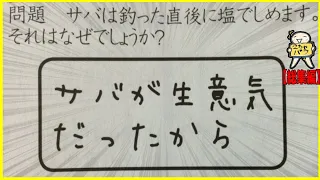 問題　サバは釣った直後に塩でしめます。
それはなぜでしょうか?
サバが生意気
だったから
【総集編】